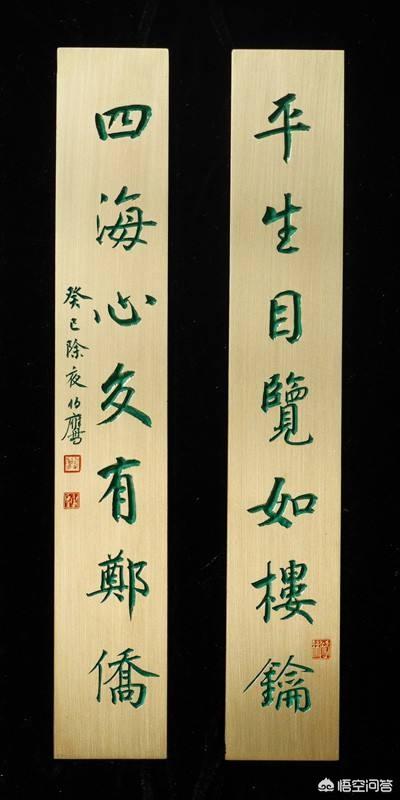 平生目覽如樓鑰
四海心交有鄭僑
癸巳除夜伯鷹
悟空问答